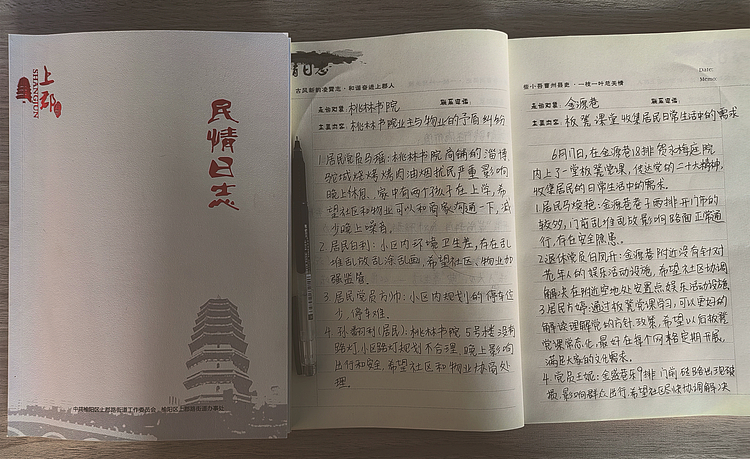 上郡
SHANGJUN
民情日志
中共榆阳区上郡路街道工作委员会 榆阳区上郡路街道办事处
情日志
古风新韵凌霄志·和谐奋进上郡人
走访对象 桃林书院 联系电话
主要内容 桃林书院业主与物业的矛盾纠纷
1.居民党员马瑶:桃林书院商铺的淄博
驼城烧烤烤肉油烟扰民严重影响
晚上休息,家中有两个孩子在上学,希
望社区和物业可以和商家沟通一下,减
少晚上噪音。
2.居民白利:小区内环境卫生差,存在乱
堆乱放乱涂乱画,希望社区、物业加
强监管。
3.居民党员方帅:小区内规划的停车位
少,停车难。
4.孙(居民):桃林书院5号楼没有
路灯,小区路灯规划不合理,晚上影响
出行和安全,希望社区和物业协商处
理。
些小吾曹州县吏·一枝一叶总关情
Date:
Memo:
走访对象 金源巷 联系电话
主要内容 板凳课堂收集居民日常生活中的需求
6月17日,在金源巷18排贺永梅庭院
内上了一堂板凳党课,传达党的二十大精神,
收集居民的日常生活中的需求。
1.居民马焕艳:金源巷巷子两排开门市的
较多,门前乱堆乱放影响路面正常通
行,存在安全隐患。
2.退休党员白凤开:金源巷附近没有针对
老年人的娱乐活动设施,希望社区协调
解决在附近空地处安置点娱乐活动设施
3.居民方婷:通过板凳党课学习,可以更好的
解读理解党的方针政策,希望以后板凳
党课常态化,最好在每个网格定期开展,
满足大家的文化需求。
4.党员王妮:金盛巷东9排门前砖路出现破
损,影响群众出行,希望社区尽快协调解决